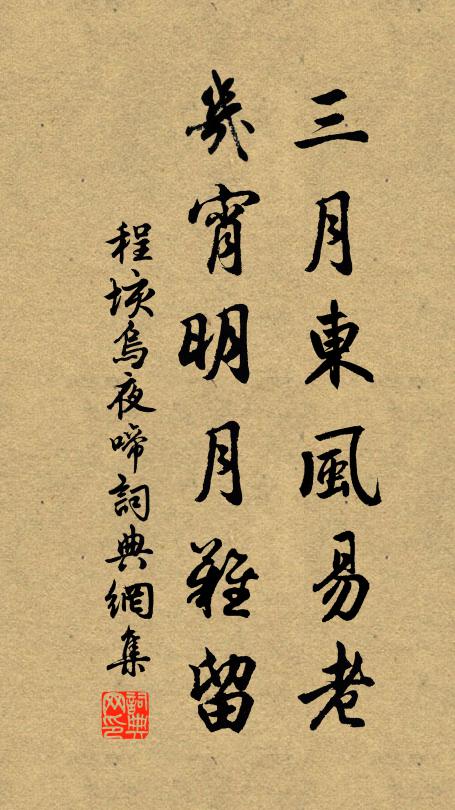 三月東風易老
幾宵明月難留
程垓烏夜啼詞典網集
詞典
网印